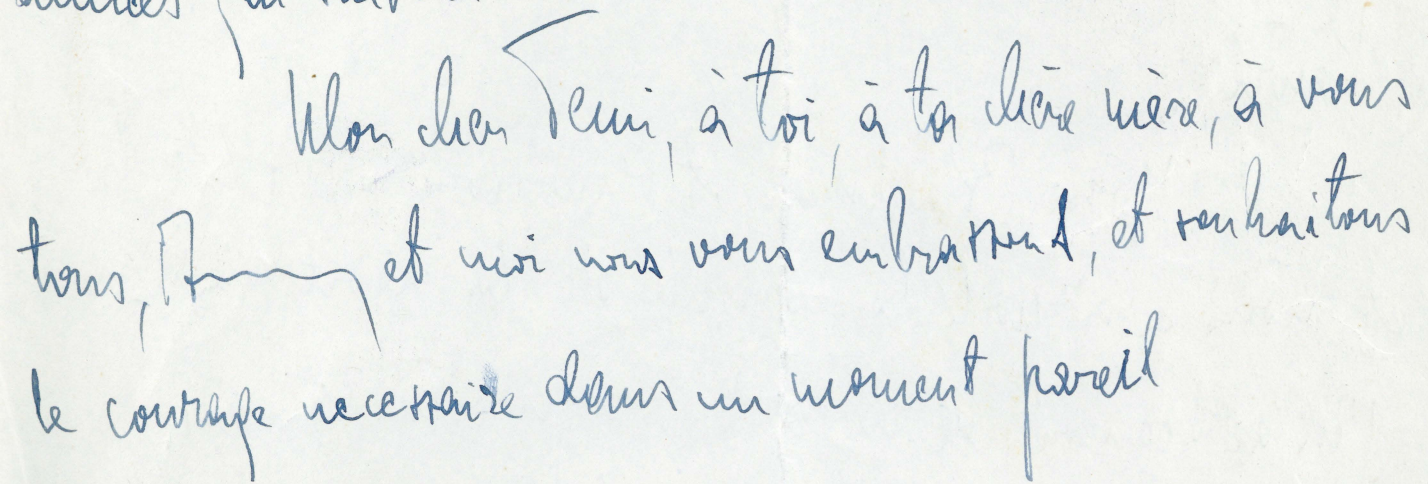 Mon cher , à toi, à ta chère mère, à vous
tous, et moi nous vous embrassont, et souhaitons
le courage necessaire dans un moment pareil